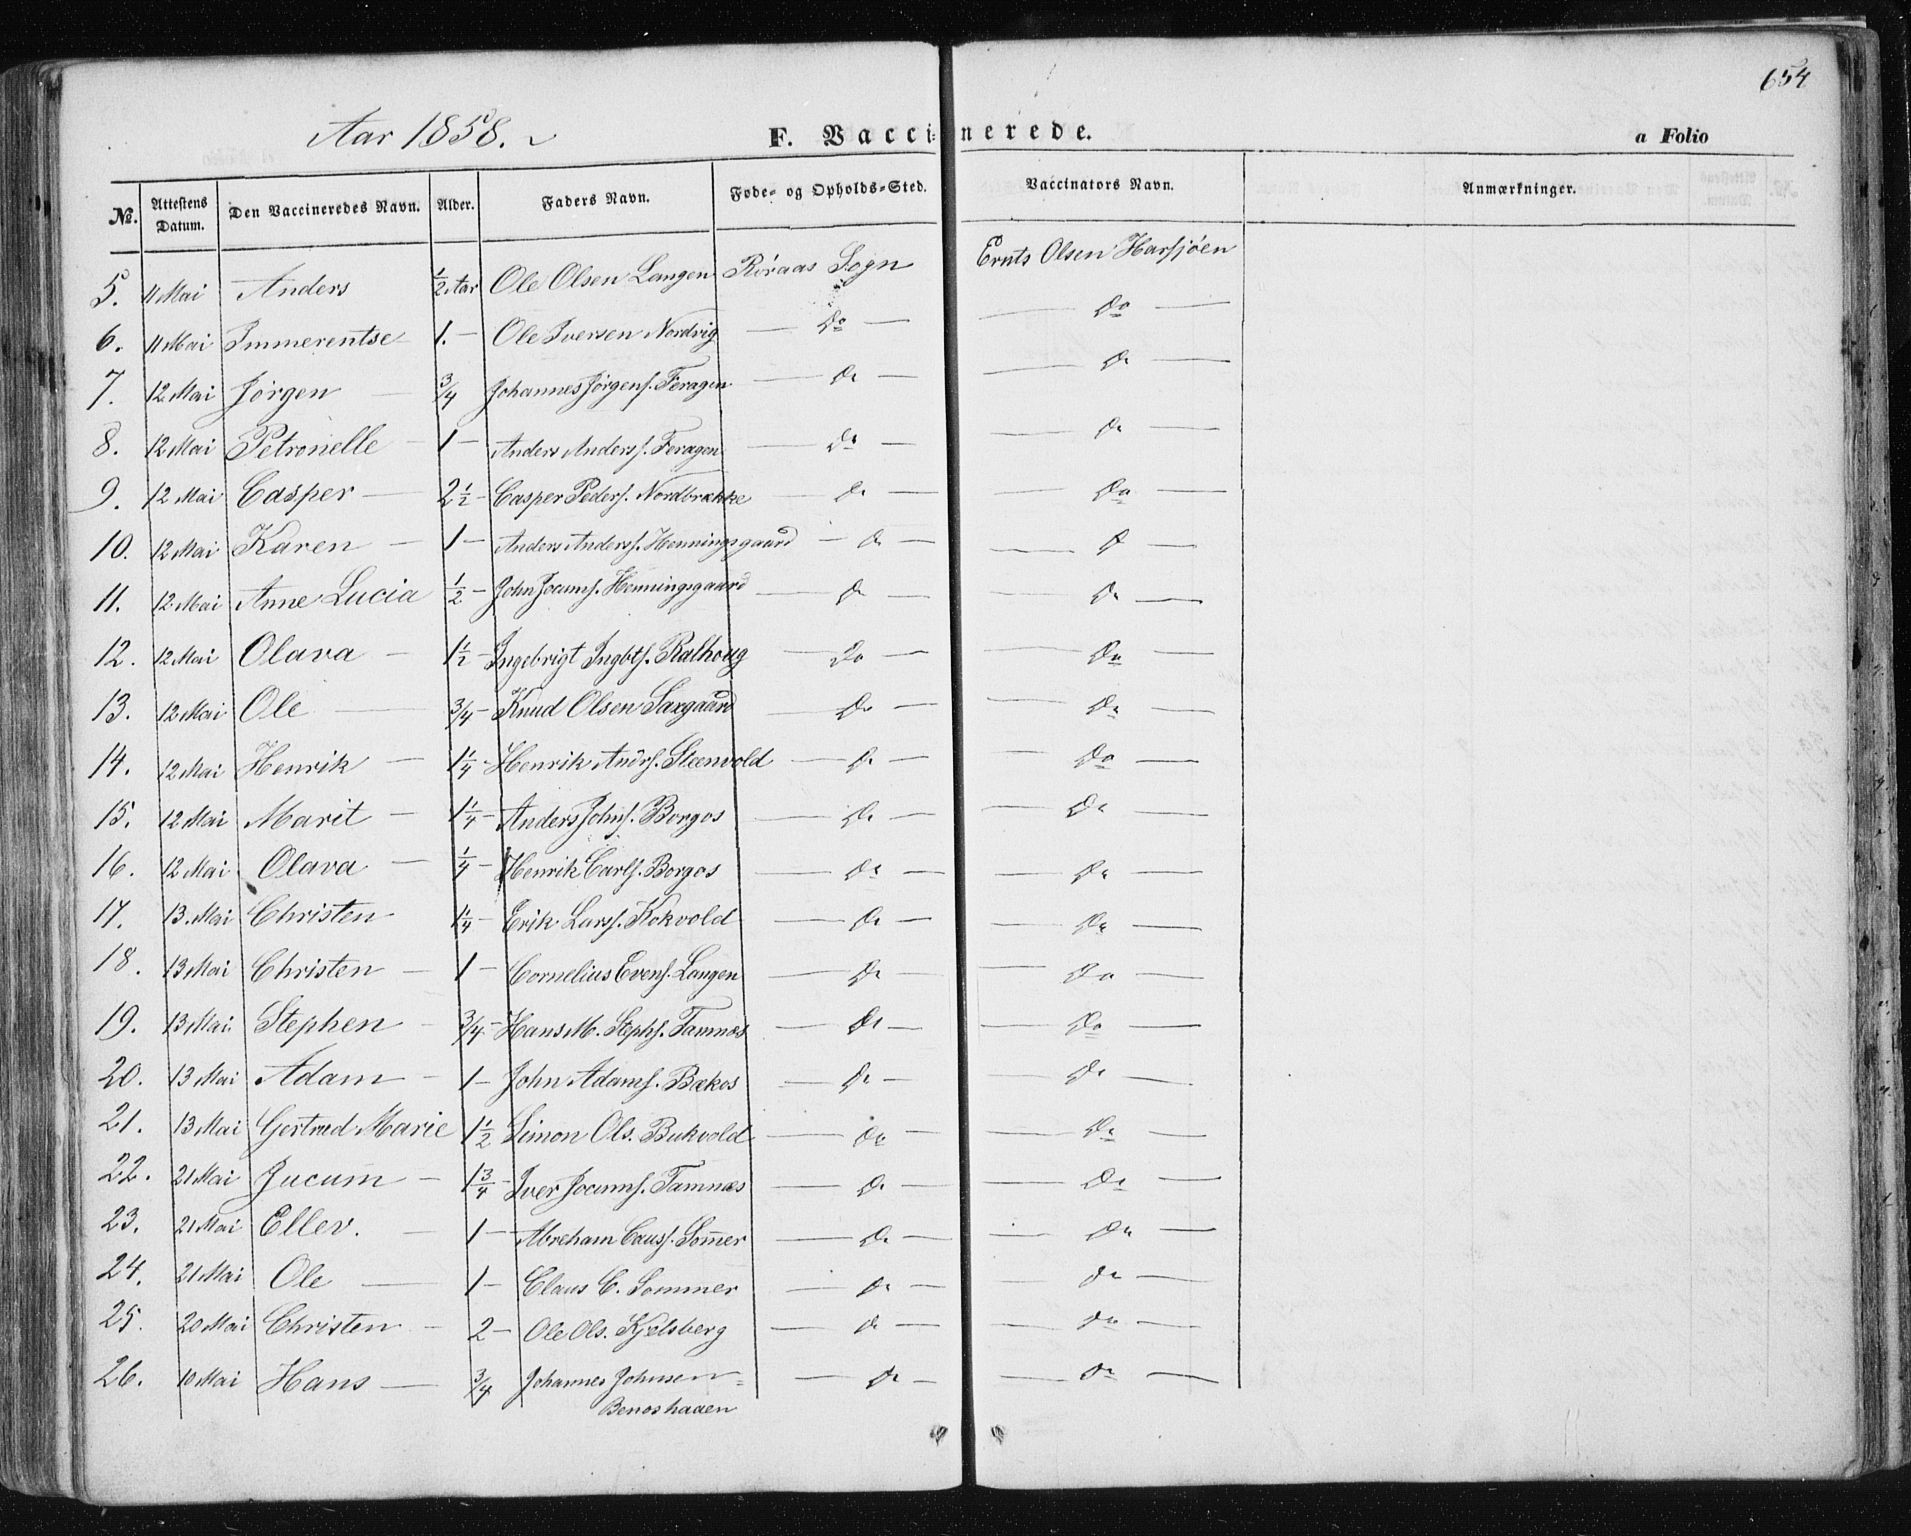 654
Aar 1858.
F. Vaccinerede.
a Folio
No. Attestens Datum. Den Vaccineredes Navn. Alder. Faders Navn. Føde- og Opholds-Sted. Vaccinators Navn. Anmærkninger.
5. 11 Mai Anders ½ Aar Ole Olsen Langen Røraas Sogn Ernts Olsen Harsjøen
6. 11 Mai Immerentse 1.- Ole Iversen Nordvig — Do — — Do —
7. 12 Mai Jørgen — ¾ Johannes Jørgens. Feragen — Do — — Do —
8. 12 Mai Petronelle 1 - Anders Anderss. Feragen — Do — — Do —
9. 12 Mai Casper — 2½ - Casper Peders. Nordbrække — Do — — Do —
10. 12 Mai Karen — 1 - Anders Anderss. Henningsgaard — Do — — Do —
11. 12 Mai Anne Lucia ½ - John Jocums. Henningsgaard — Do — — Do —
12. 12 Mai Olava — 1½ - Ingebrigt Ingbts. Ralhoug — Do — — Do —
13. 12 Mai Ole — ¾ - Knud Olsen Saxgaard — Do — — Do —
14. 12 Mai Henrik — 1¼ - Henrik Andrs. Steenvold — Do — — Do —
15. 12 Mai Marit — 1¼ - Anders Johns. Borgos — Do — — Do —
16. 12 Mai Olava — ¼ - Henrik Carls. Borgos — Do — — Do —
17. 13. Mai Christen 1¼ - Erik Larss. Kokvold — Do — — Do —
18. 13 Mai Christen — 1 - Cornelius Evens. Langen — Do — — Do —
19. 13 Mai Stephen — ¾ - Hans M. Stephs. Tamnæs — Do — — Do —
20. 13 Mai Adam — 1 - John Adams. Bækos — Do — — Do —
21. 13 Mai Gertrud Marie 1½ Simon Ols. Bukvold — Do — — Do —
22. 21 Mai Jucum — 1¾ - Iver Jocums. Tamnæs — Do — — Do —
23. 21 Mai Ellev. — 1 - Abreham Clauss. Som̄er — Do — — Do —
24. 21 Mai Ole — 1 - Claus C. Sommer — Do — — Do —
25. 20 Mai Christen — 2 - Ole Ols. Kjelsberg — Do — — Do —
26. 10 Mai Hans — ¾ Johannes Johnsen = — Do — — Do —
Benoshaaen